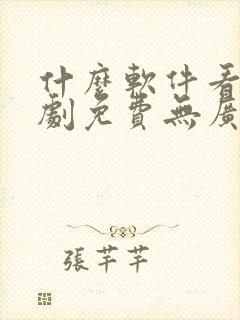 什麼軟件看
劇免費無廣
張芊芊